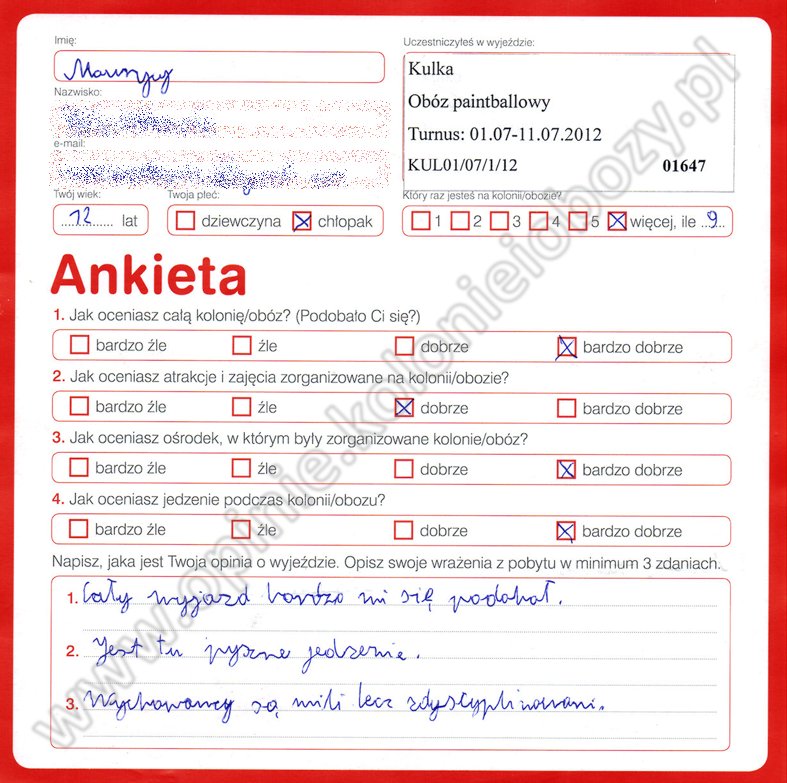 Imię:
Uczestniczyłeś w wyjeździe:
Kulka
Nazwisko:
Obóz paintballowy
Turnus: 01.07-11.07.2012
e-mail:
KUL01/07/1/12 01647
Twój wiek:
Twoja płeć:
Który raz jesteś na kolonii/obozie?
12 lat
dziewczyna chłopak
1 2 3 4 5 więcej, ile 9
Ankieta
1. Jak oceniasz całą kolonię/obóz? (Podobało Ci się?)
bardzo źle źle dobrze bardzo dobrze
2. Jak oceniasz atrakcje i zajęcia zorganizowane na kolonii/obozie?
bardzo źle źle dobrze bardzo dobrze
3. Jak oceniasz ośrodek, w którym były zorganizowane kolonie/obóz?
bardzo źle źle dobrze bardzo dobrze
4. Jak oceniasz jedzenie podczas kolonii/obozu?
bardzo źle źle dobrze bardzo dobrze
Napisz, jaka jest Twoja opinia o wyjeździe. Opisz swoje wrażenia z pobytu w minimum 3 zdaniach.
1. Cały wyjazd bardzo mi się podobał.
2. Jest tu pyszne jedzenie.
3. Wychowawcy są mili lecz zdyscyplinowani.
www.opinie.kolonieiobozy.pl